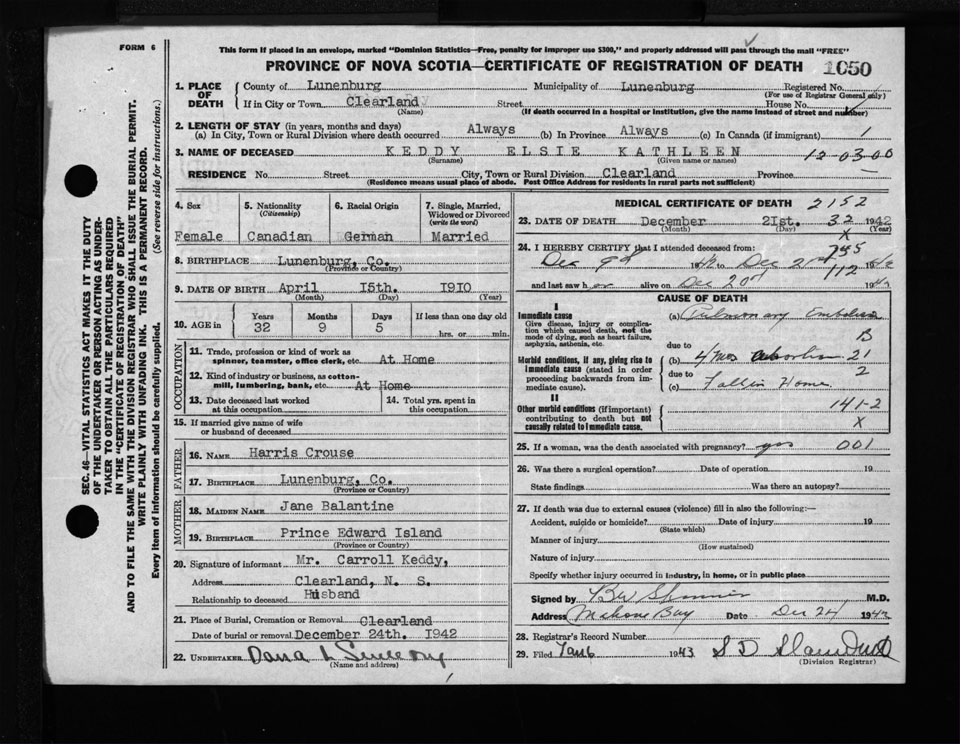 FORM 6
This form if placed in an envelope, marked "Dominion Statistics—Free, penalty for improper use $300," and properly addressed will pass through the mail "FREE"
PROVINCE OF NOVA SCOTIA—CERTIFICATE OF REGISTRATION OF DEATH 1050
SEC. 46—VITAL STATISTICS ACT MAKES IT THE DUTY
OF THE UNDERTAKER OR PERSON ACTING AS UNDER-
TAKER TO OBTAIN ALL THE PARTICULARS REQUIRED
IN THE "CERTIFICATE OF REGISTRATION OF DEATH"
AND TO FILE THE SAME WITH THE DIVISION REGISTRAR WHO SHALL ISSUE THE BURIAL PERMIT.
WRITE PLAINLY WITH UNFADING INK. THIS IS A PERMANENT RECORD.
Every item of information should be carefully supplied. (See reverse side for instructions.)
1. PLACE OF DEATH
County of Lunenburg Municipality of Lunenburg Registered No.
(For use of Registrar General only)
If in City or Town Clearland Street House No.
(Name) (If death occurred in a hospital or institution, give the name instead of street and number)
2. LENGTH OF STAY (in years, months and days)
(a) In City, Town or Rural Division where death occurred Always (b) In Province Always (c) In Canada (if immigrant) 1
3. NAME OF DECEASED KEDDY ELSIE KATHLEEN 12-03-00
(Surname) (Given name or names)
RESIDENCE No. Street City, Town or Rural Division Clearland Province
(Residence means usual place of abode. Post Office Address for residents in rural parts not sufficient)
4. Sex
Female
5. Nationality
(Citizenship)
Canadian
6. Racial Origin
German
7. Single, Married,
Widowed or Divorced
(write the word)
Married
8. BIRTHPLACE Lunenburg, Co.
(Province or Country)
9. DATE OF BIRTH April 15th. 1910
(Month) (Day) (Year)
10. AGE in
Years Months Days If less than one day old
32 9 5 hrs. or min.
OCCUPATION
11. Trade, profession or kind of work as
spinner, teamster, office clerk, etc. At Home
12. Kind of industry or business, as cotton-
mill, lumbering, bank, etc. At Home
13. Date deceased last worked
at this occupation
14. Total yrs. spent in
this occupation
15. If married give name of wife
or husband of deceased
FATHER
16. NAME Harris Crouse
17. BIRTHPLACE Lunenburg, Co.
(Province or Country)
MOTHER
18. MAIDEN NAME Jane Balantine
19. BIRTHPLACE Prince Edward Island
(Province or Country)
20. Signature of informant Mr. Carroll Keddy,
Address Clearland, N. S.
Relationship to deceased Husband
21. Place of Burial, Cremation or Removal Clearland
Date of burial or removal December 24th. 1942
22. UNDERTAKER Dana L Sweeny
(Name and address)
MEDICAL CERTIFICATE OF DEATH 2152
23. DATE OF DEATH December 21st. 32 1942
(Month) (Day) (Year)
X
24. I HEREBY CERTIFY that I attended deceased from:
Dec 9th 1942 to Dec 2
112
and last saw her alive on Dec 20th 1942
CAUSE OF DEATH
I
Immediate cause
Give disease, injury or complica-
tion which caused death, not the
mode of dying, such as heart failure,
asphyxia, asthenia, etc.
(a) Pulmonary Embolism
B
due to
Morbid conditions, if any, giving rise to
immediate cause (stated in order
proceeding backwards from im-
mediate cause).
(b) 4 mos abortion 21
due to 2
(c) Fall in Home
II
Other morbid conditions (if important)
contributing to death but not
causally related to immediate cause.
141-2
X
25. If a woman, was the death associated with pregnancy? yes 001
26. Was there a surgical operation? Date of operation 19
State findings Was there an autopsy?
27. If death was due to external causes (violence) fill in also the following:—
Accident, suicide or homicide? Date of injury 19
(State which)
Manner of injury
(How sustained)
Nature of injury
Specify whether injury occurred in industry, in home, or in public place
Signed by M.D.
Address Mahone Bay Date Dec 24 1942
28. Registrar's Record Number
29. Filed Jan 6 1943
(Division Registrar)